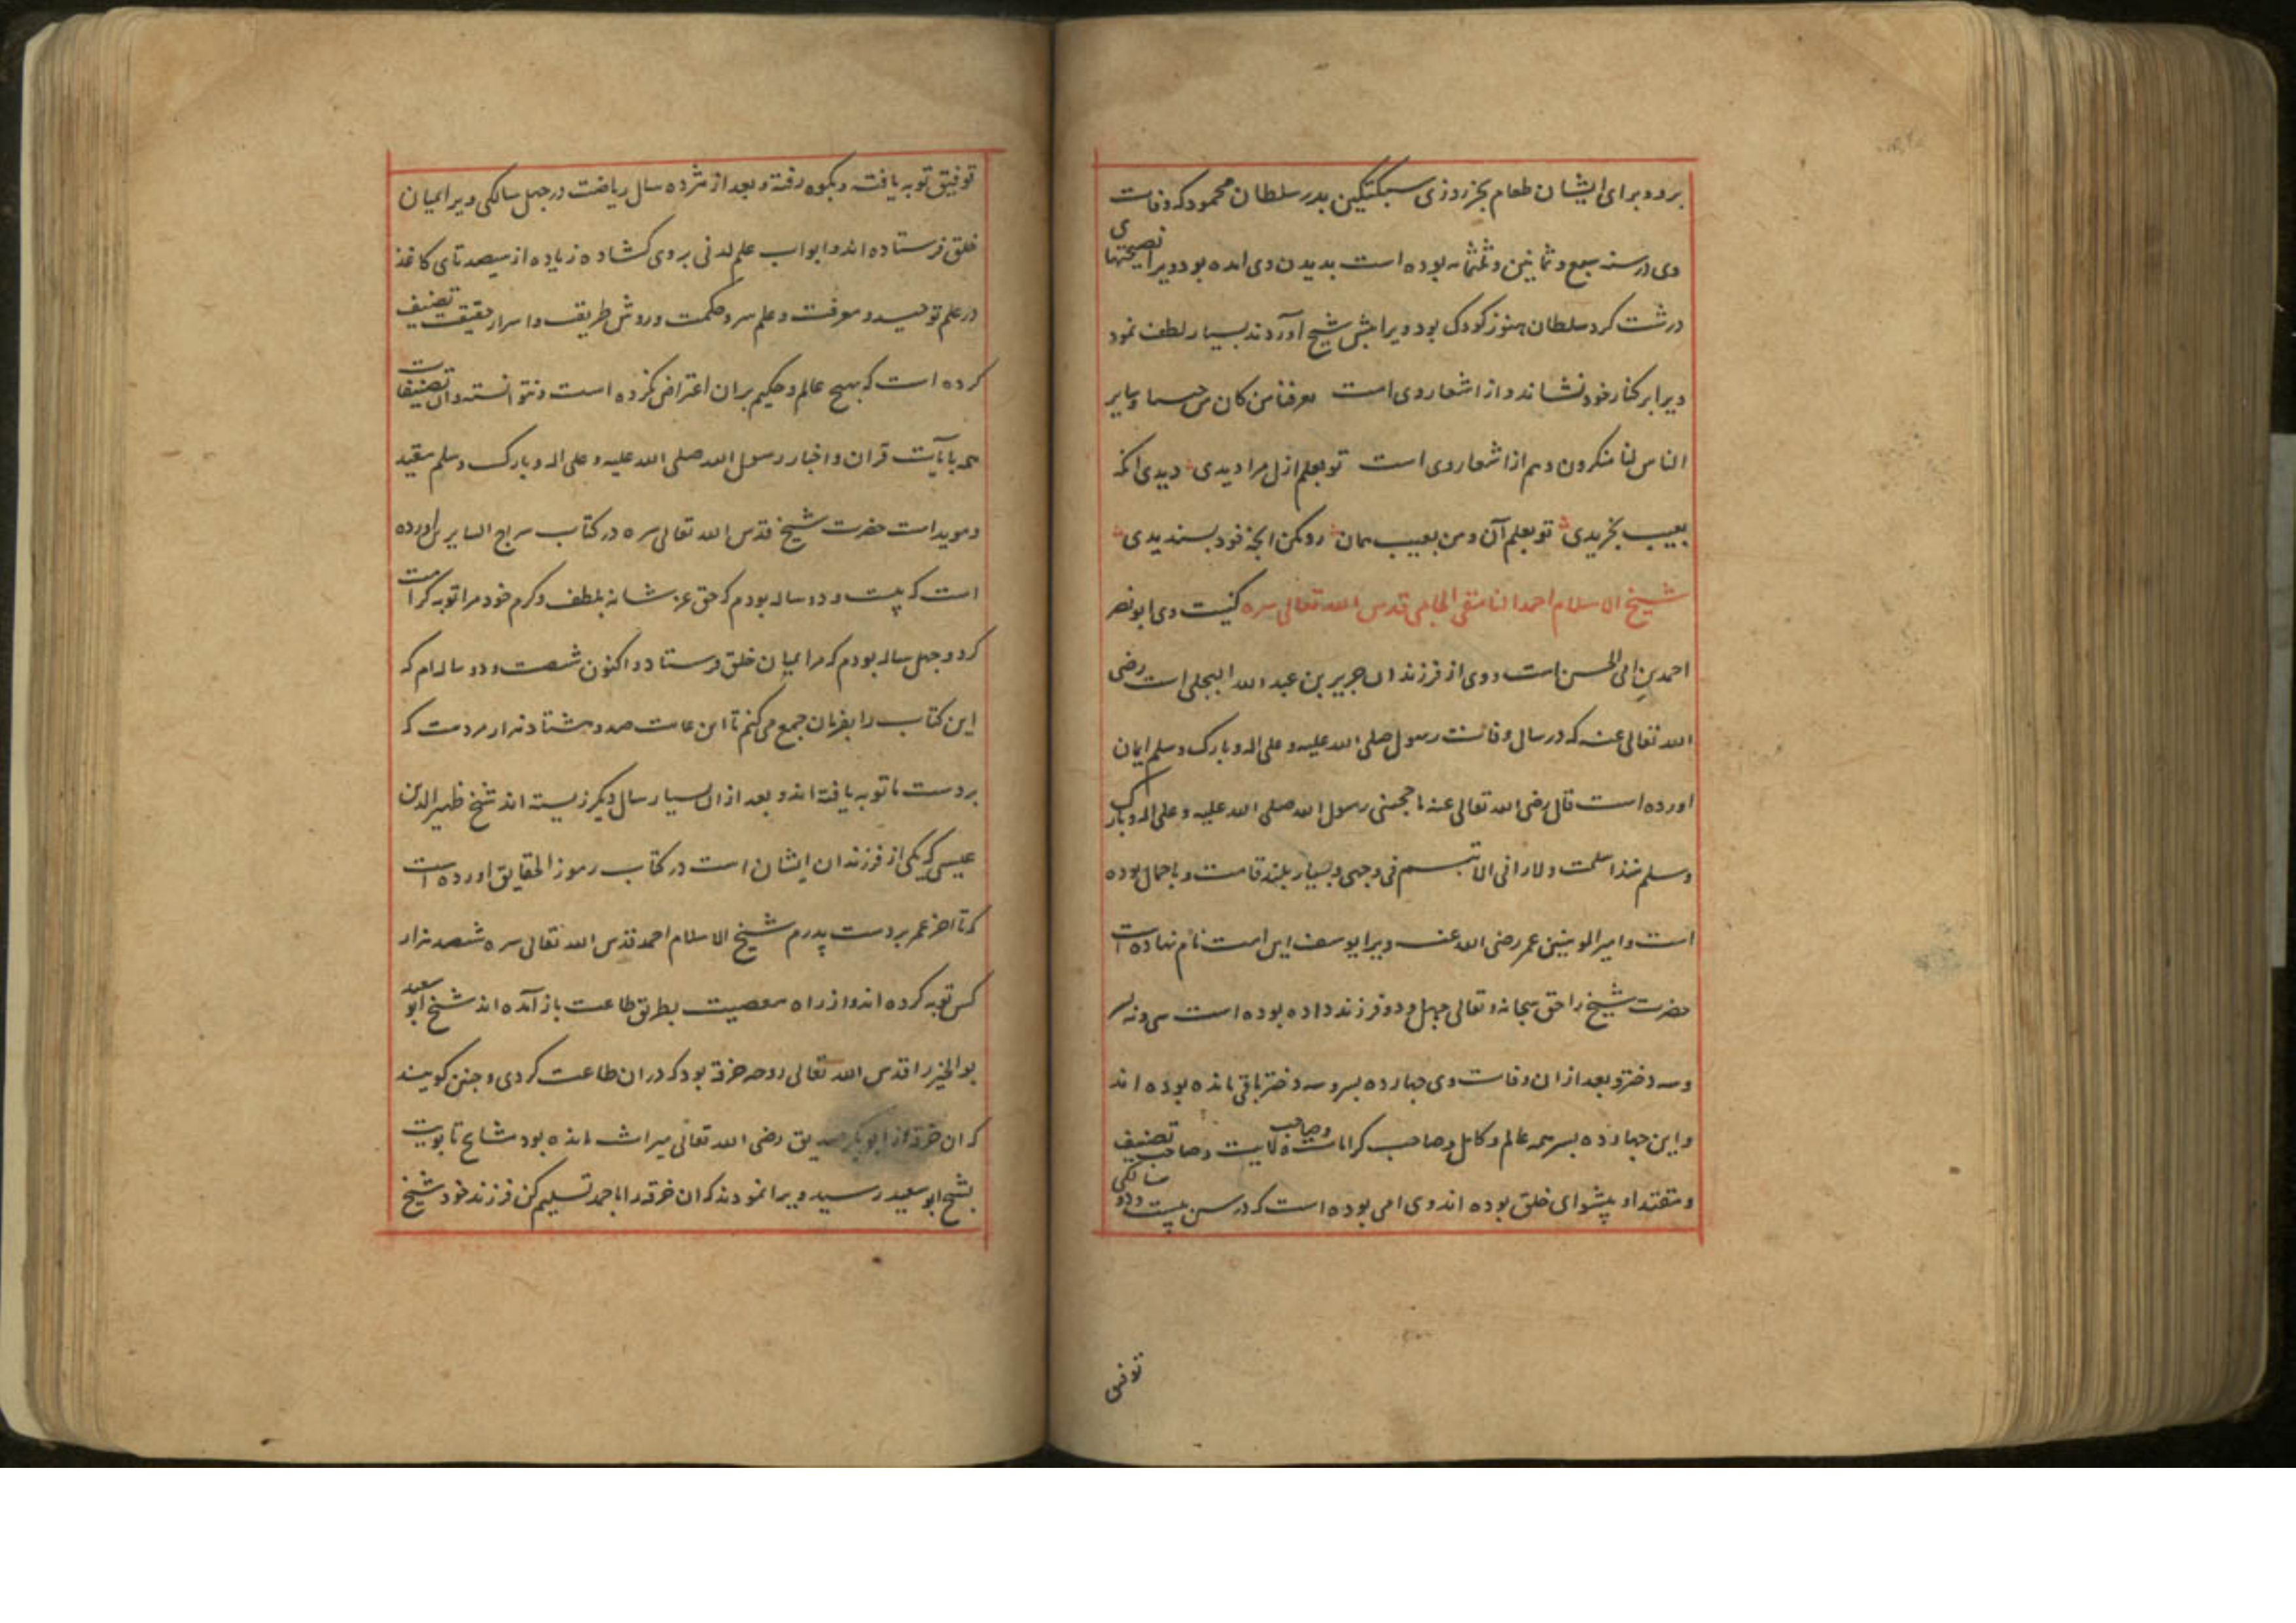 برد و برای ایشان طعام بخر روزی سبکتگین بدر سلطان محمود که وفات
وی در سنه سبع و ثمانین و ثلثمایه بوده است بدیدن وی امده بود ویرا نصیحتهای
درشت کرد سلطان هنوز کودک بود ویرا پیش شیخ آوردند بسیار لطف نمود
ویرا بر کنار خود نشاند و از اشعار وی است معرفنا من کان من جسما و سایر
الناس لنا منکرون و هم از اشعار وی است تو بعلم ازل مرا دیدی دیدی انکه
بعیب بخریدی تو بعلم آن و من بعیب همان رد مکن انچه خود بسندیدی
شیخ الاسلام احمد النامقی الجامی قدس الله تعالی سره کنیت وی ابو نصر
احمد بن ابی الحسن است و وی از فرزندان جریر بن عبد الله البجلی است رضی
الله تعالی عنه که در سال وفات رسول صلی الله علیه و علی اله و بارک و سلم ایمان
اورده است قال رضی الله تعالی عنه ما حجبنی رسول الله صلی الله علیه و علی اله و بارک
و سلم منذ اسلمت و لا رانی الا تبسم فی وجهی و بسیار بلند قامت و با جمال بوده
است و امیر المومنین عمر رضی الله عنه ویرا یوسف این امت نام نهاده است
حضرت شیخ را حق سبحانه و تعالی چهل و دو فرزند داده بوده است سی و نه پسر
و سه دختر و بعد از ان وفات وی چهارده بسر و سه دختر باقی مانده بوده اند
و این چهارده بسر همه عالم و کامل و صاحب کرامات و صاحب ولایت و صاحب تصنیف
و مقتدا و پیشوای خلق بوده اند وی امی بوده است که در سن بیست و دو سالکی
توفیق
توفیق توبه یافته و بکوه رفته و بعد از هژده سال ریاضت در چهل سالکی ویرا بمیان
خلق فرستاده اند و ابواب علم لدنی بروی کشاده زیاده از سیصد تای کاغذ
در علم توحید و معرفت و علم سر و حکمت و روش طریقت و اسرار حقیقت تصنیف
کرده است که هیچ عالم و حکیم بران اعتراض نکرده است و نتوانسته و ان تصنیفات
همه بآیات قران و اخبار رسول الله صلی الله علیه و علی اله و بارک و سلم مقید
و موید است حضرت شیخ قدس الله تعالی سره در کتاب سراج السایرین اورده
است که بیست و دو ساله بودم که حق عز شانه بلطف و کرم خود مرا توبه کرامت
کرد و چهل ساله بودم که مرا بمیان خلق فرستاد و اکنون شصت و دو ساله ام که
این کتاب را بفرمان جمع می کنم تا این غایت صد و هشتاد هزار مردست که
بردست ما توبه یافته اند و بعد از ان بسیار سال دیگر زیسته اند شیخ ظهیر الدین
عیسی که یکی از فرزندان ایشان است در کتاب رموز الحقایق اورده است
که تا اخر عمر بردست پدرم شیخ الاسلام احمد قدس الله تعالی سره ششصد هزار
کس توبه کرده اند و از راه معصیت بطریق طاعت باز آمده اند شیخ ابو سعید
بو الخیر را قدس الله تعالی روحه خرقه بود که دران طاعت کردی و چنین کویند
که ان خرقه از ابو بکر صدیق رضی الله تعالی میراث مانده بود مشایخ تا نوبت
بشیخ ابو سعید رسید ویرا نمودند که ان خرقه را با احمد تسلیم کن فرزند خود شیخ